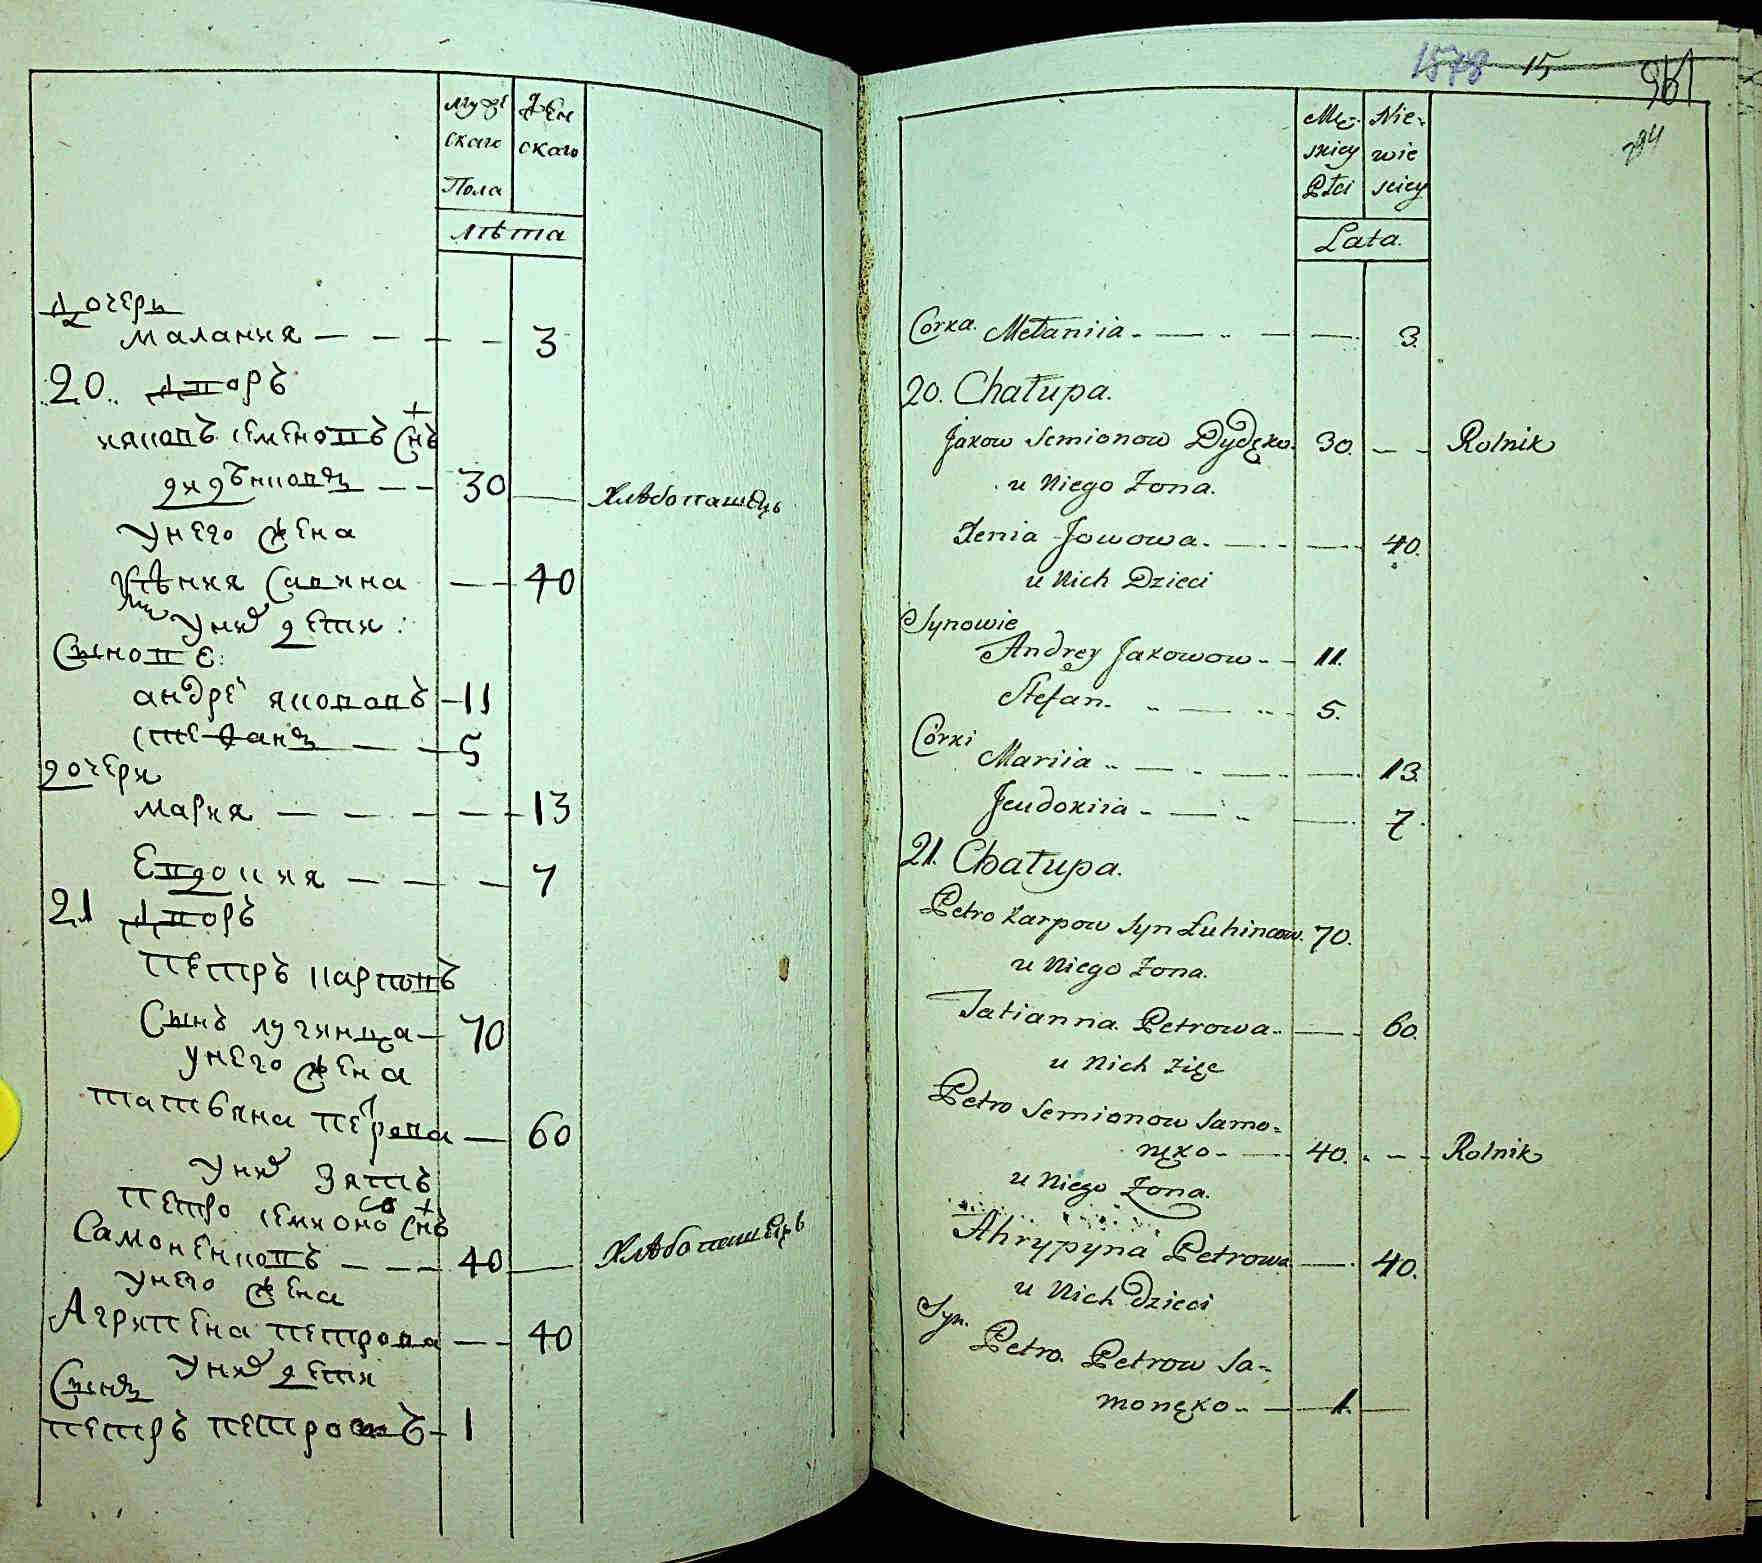 Мужескаго Пола
Женскаго
лѣта
дочерь
малания — — — — 3
20. дворъ
ияковъ семеновъ снъ
дидѣнковъ — — 30 — Хлѣбопашець
унего жена
Савина — — 40
уних дети:
Сынове:
андрей яковавъ — 11
стефанъ — — 5
дочери
мария — — — — 13
Евдокия — — — 7
21 дворъ
петръ карповъ
Сынъ лугинца — 70
унего жена
татвяна петрова — 60
уних зять
петро семионов снъ
Самоненковъ — — — 40 — Хлѣбопашець
унего жена
Агрипена петрова — — 40
уних дети
Сынъ
петръ петровъ — 1
1578 15 361
294
Męskiey Płci
Niewieściey
Lata.
Corka. Mełaniia. — — — 3.
20. Chałupa.
Jakow Semionow Dydęko. 30. — — Rolnik
u Niego Żona.
Xenia Jowowa. — — 40.
u Nich Dzieci
Synowie
Andrey Jakowow — — 11.
Stefan. — — 5.
Córki
Mariia — — — — 13.
Jeudokiia — — — 7.
21. Chałupa.
Petro Karpow Syn Luhincow. 70.
u Niego Żona.
Tatianna Petrowa. — 60.
u Nich Zięc
Petro Semionow Samo=
nęko — — 40. — — Rolnik
u Niego Żona.
Ahrypyna Petrowa — 40.
u Nich dzieci
Syn.
Petro. Petrow Sa=
monęko — — 1. —